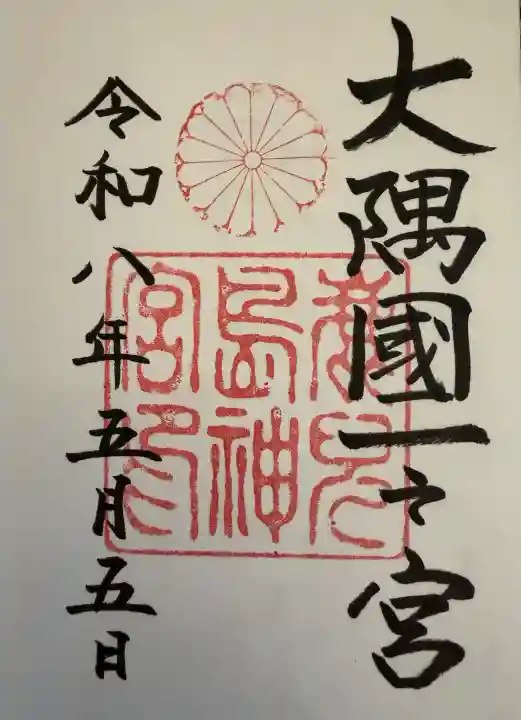 大隅國一之宮
鹿兒
島神
宮印
令和八年五月五日